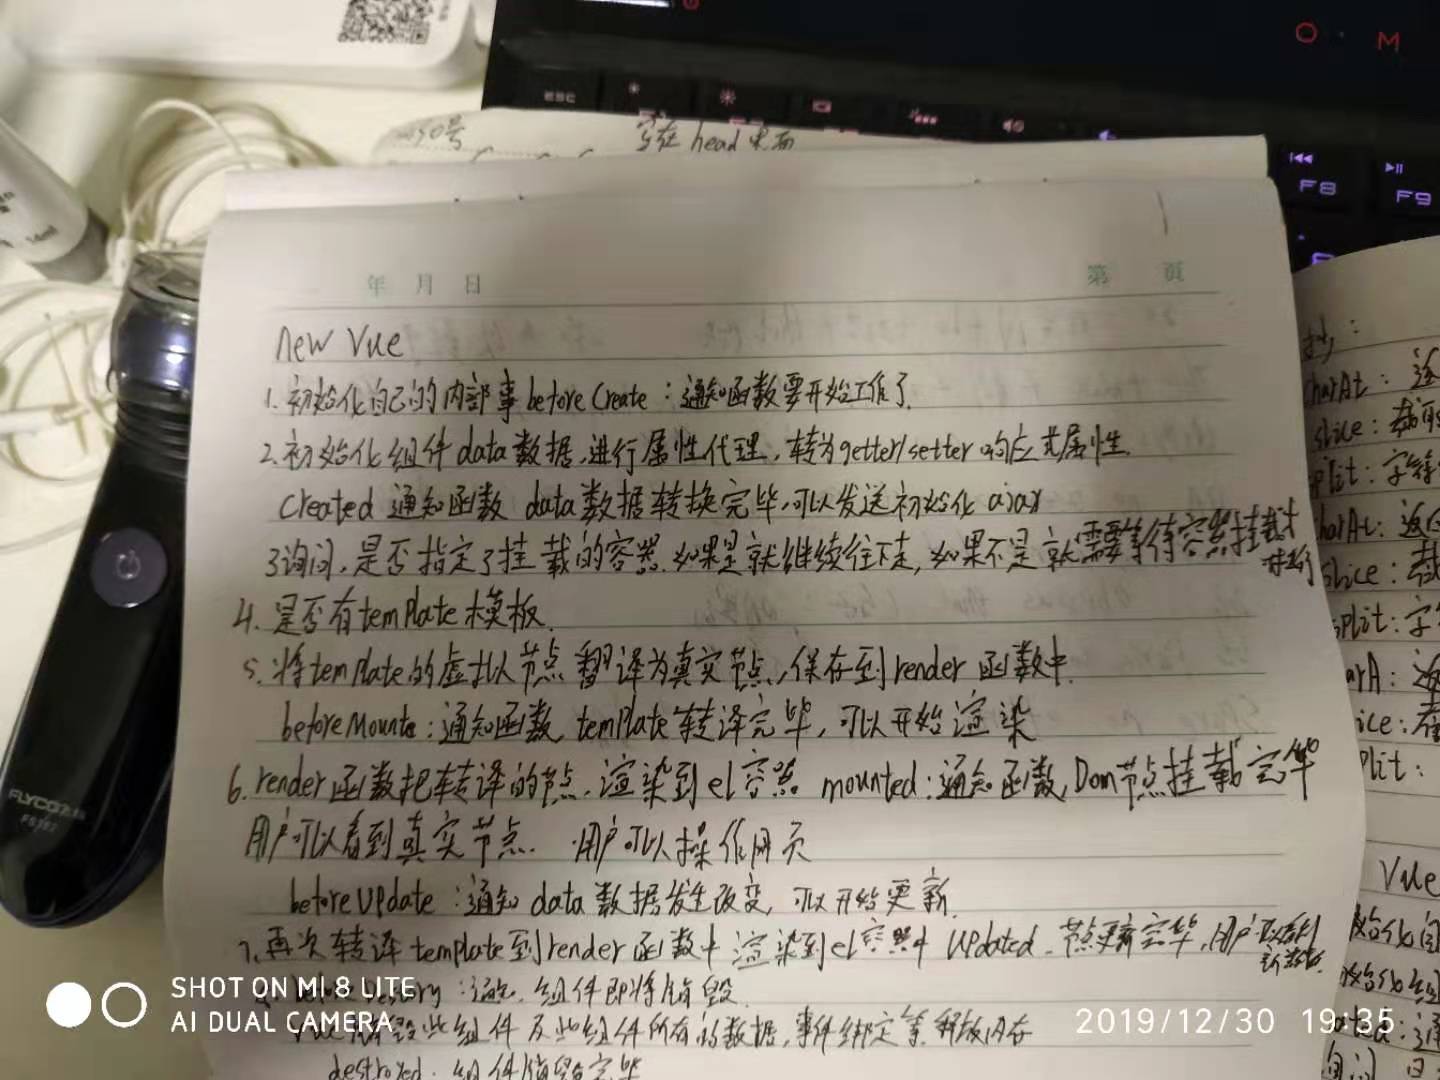 esc
O M
F8
F9
50号
写在 head 里面
年 月 日
第 页
new Vue
1.初始化自己的内部事 beforeCreate：通知函数要开始工作了.
2.初始化组件 data数据,进行属性代理,转为getter/setter 响应式属性.
Created 通知函数 data数据转换完毕,可以发送初始化 ajax
3询问,是否指定了挂载的容器.如果是就继续往下走,如果不是就需要等待容器挂载才
4.是否有temPlate模板.
5.将temPlate的虚拟节点翻译为真实节点,保存到render函数中.
beforeMounte：通知函数,temPlate转译完毕,可以开始渲染
6.render函数把转译的节点.渲染到el容器 mounted：通知函数,Dom节点挂载完毕
用户可以看到真实节点. 用户可以操作网页
beforeUPdate：通知data数据发生改变,可以开始更新.
7.再次转译template到render函数中渲染到el容器中 UPdated.节点更新完毕,用户可以看到
新数据.
before Destory：通知.组件即将销毁.
Vue销毁此组件及此组件所有的数据,事件绑定等.释放内存
destroyed.组件销毁完毕
charAt：返
slice：截取
split：字符
charAt：返回
slice：截
split：字
arA：返
ice：截
plit：
Vue
FLYCO飞科
SHOT ON MI 8 LITE
AI DUAL CAMERA
2019/12/30 19:35